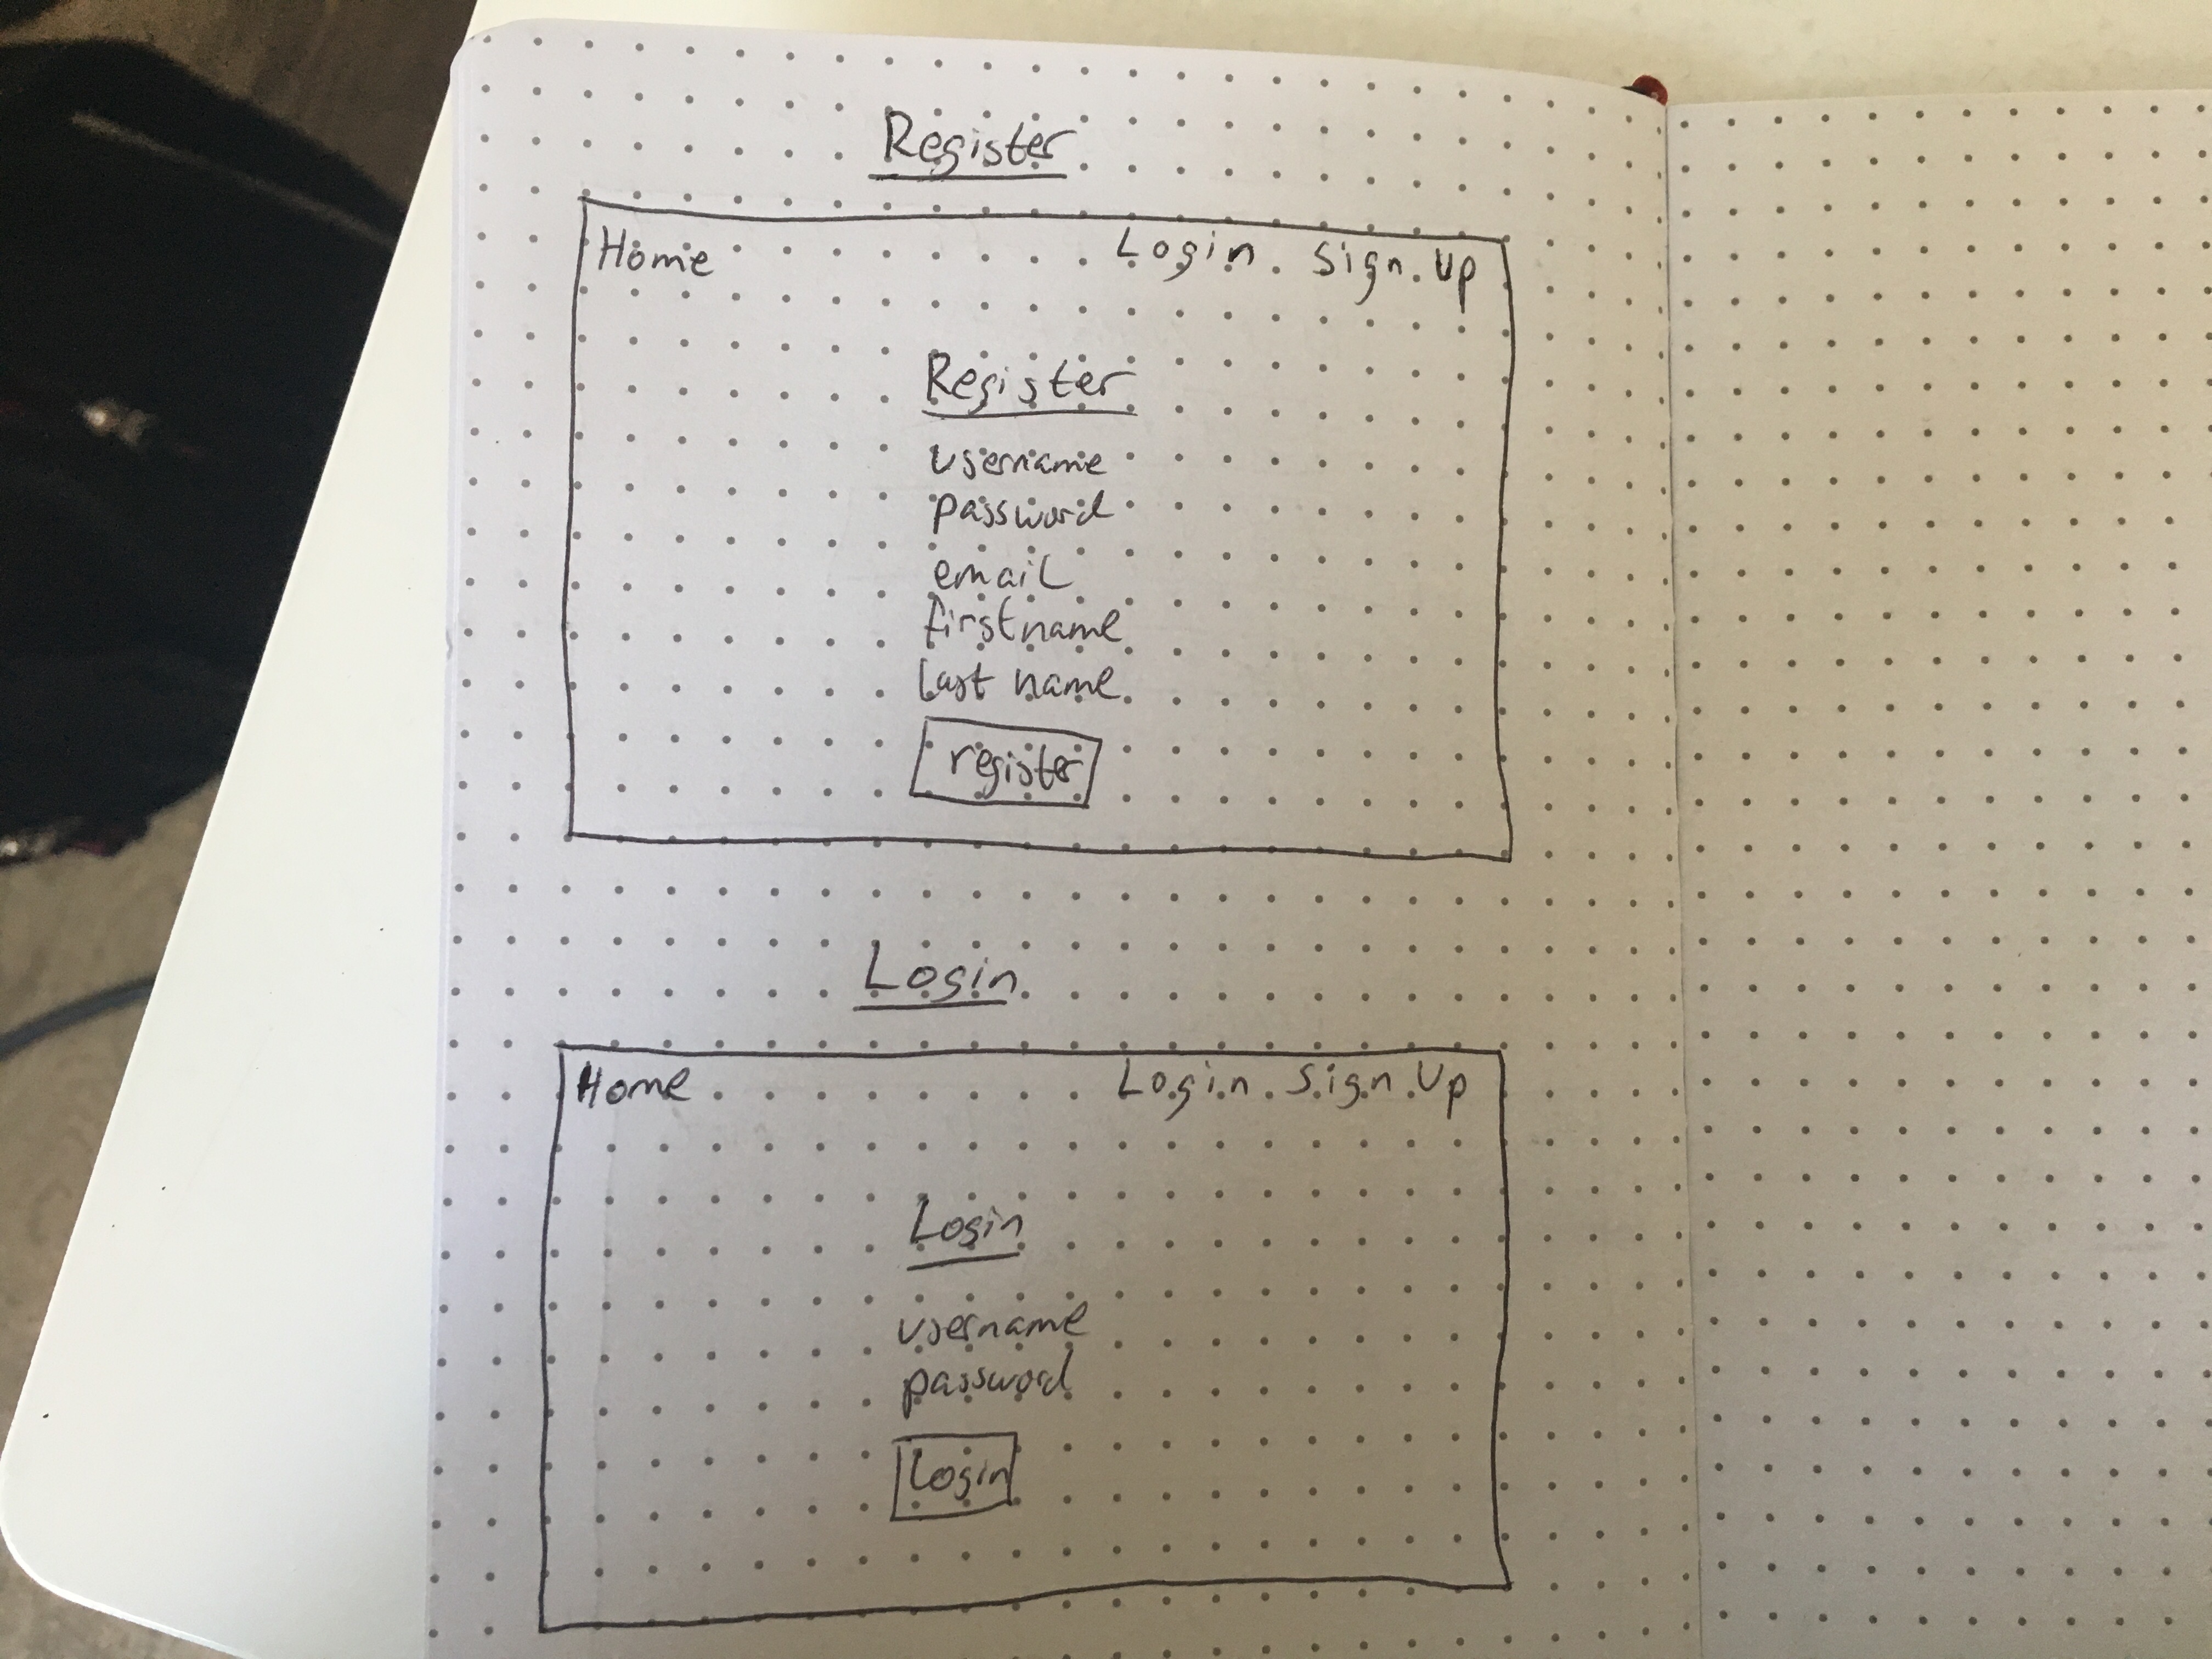 Register
Home Login Sign Up
Register
username
password
email
firstname
last name
register
Login
Home Login Sign Up
Login
username
password
Login